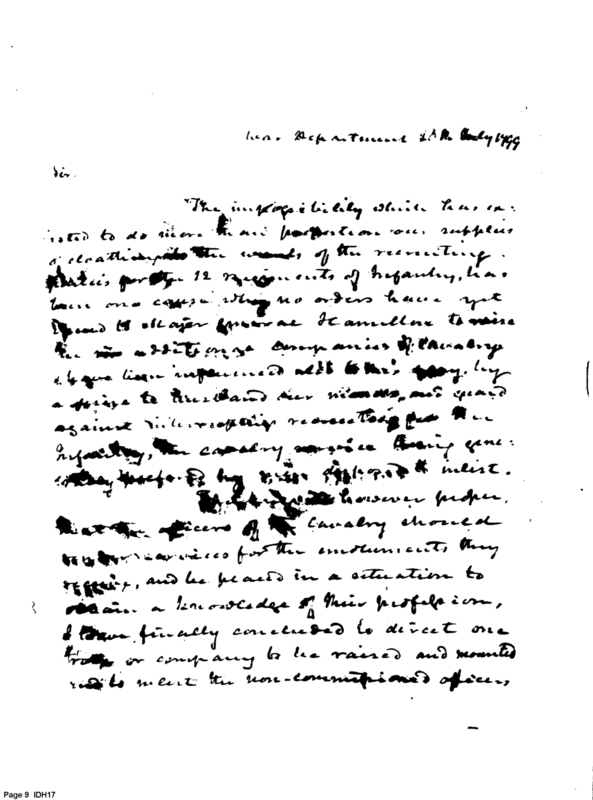 War Department July 1799
Sir.
The impossibility which has ex:
isted to do more than proportion our supplies
of cloathing to the wants of the recruiting
parties for the 12 Regiments of Infantry, has
been one cause why no orders have yet
issued to Major General Hamilton to raise
the six additional companies of Cavalry
I have been influenced also to this delay, by
a desire to husband our means, and guard
against interrupting recruiting for the
Infantry, the cavalry service being gene:
rally by to inlist.
however proper,
that the officers of the Cavalry should
render services for the emoluments they
receive, and be placed in a situation to
obtain a knowledge of their profession,
I have finally concluded to direct one
troop or company to be raised and mounted
and to inlist the non-commissioned officers
Page 9 IDH17